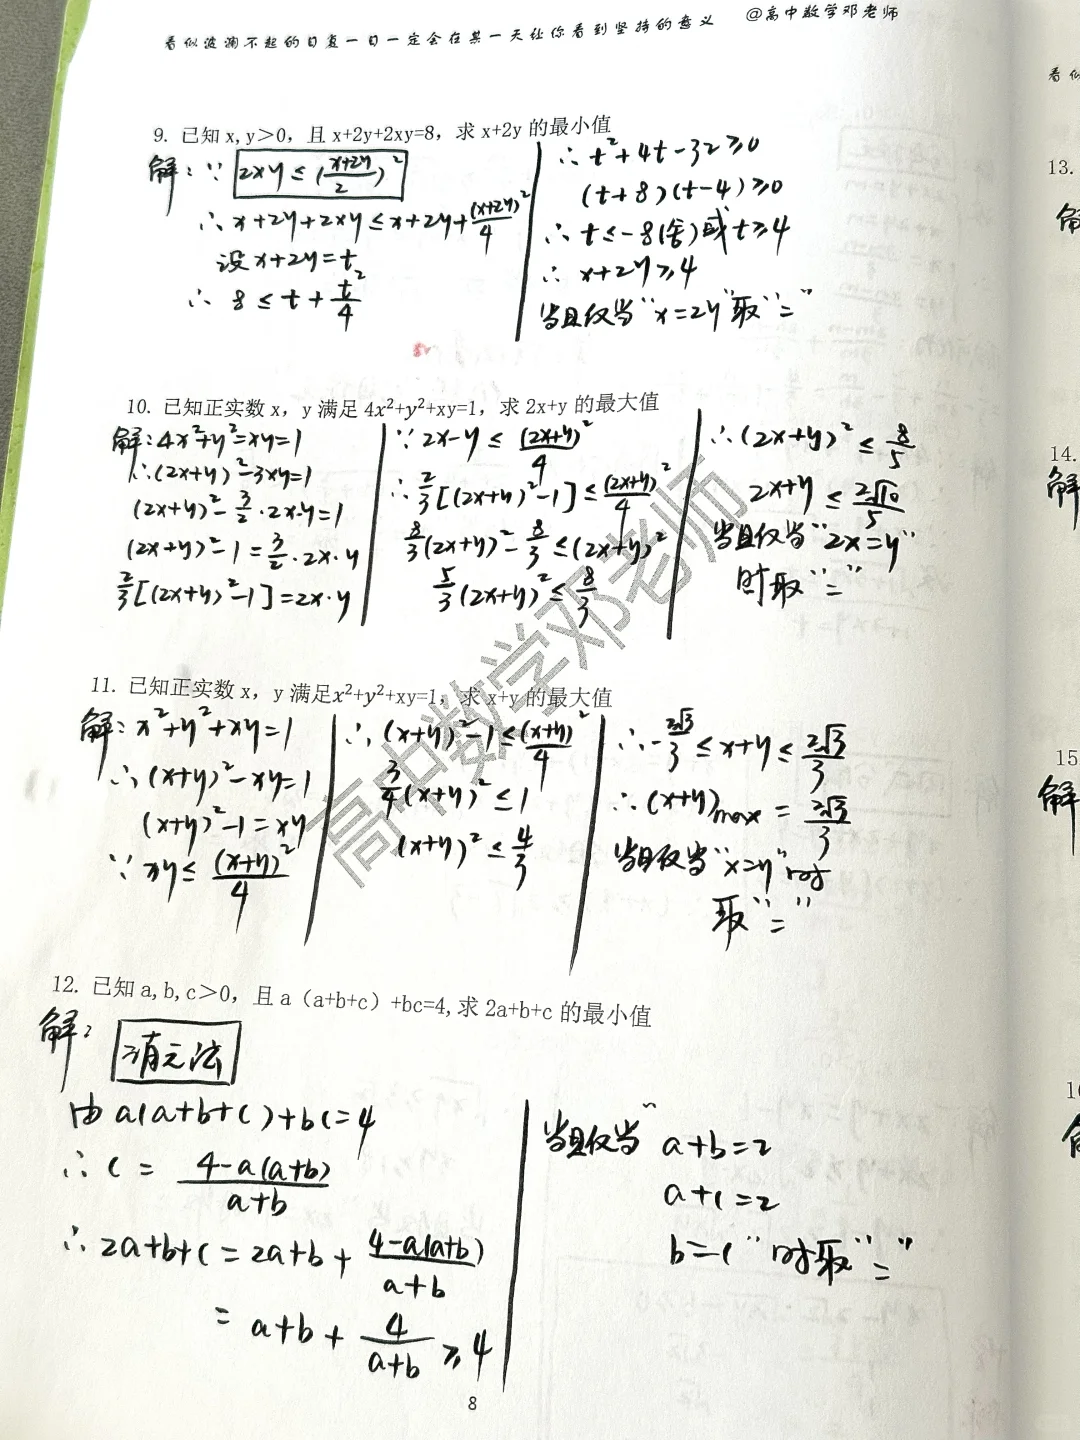 看似波澜不起的日复一日一定会在某一天让你看到坚持的意义 @高中数学邓老师
9. 已知 x,y＞0，且 x+2y+2xy=8，求 x+2y 的最小值
解：∵ 2xy ≤ (\frac{x+2y}{2})²
∴ x+2y+2xy ≤ x+2y+\frac{(x+2y)²}{4}
设 x+2y=t
∴ 8 ≤ t + \frac{t²}{4}
∴ t²+4t-32≥0
(t+8)(t-4)≥0
∴ t≤-8(舍)或t≥4
∴ x+2y≥4
当且仅当“x=2y”取“=”
10. 已知正实数 x，y 满足 4x²+y²+xy=1，求 2x+y 的最大值
解：4x²+y²-xy=1
∴(2x+y)²-3xy=1
(2x+y)²-\frac{3}{2}·2x·y=1
(2x+y)²-1=\frac{3}{2}·2x·y
\frac{2}{3}[(2x+y)²-1]=2x·y
∵ 2x-y ≤ \frac{(2x+y)²}{4}
∴ \frac{2}{3}[(2x+y)²-1]≤\frac{(2x+y)²}{4}
\frac{8}{3}(2x+y)²-\frac{8}{3}≤(2x+y)²
\frac{5}{3}(2x+y)²≤\frac{8}{3}
∴(2x+y)²≤\frac{8}{5}
2x+y≤\frac{2√10}{5}
当且仅当“2x=y”
时取“=”
11. 已知正实数 x，y 满足x²+y²+xy=1，求 x+y 的最大值
解：x²+y²+xy=1
∴(x+y)²-xy=1
(x+y)²-1=xy
∵ xy≤\frac{(x+y)²}{4}
∴(x+y)²-1≤\frac{(x+y)²}{4}
\frac{3}{4}(x+y)²≤1
(x+y)²≤\frac{4}{3}
∴-\frac{2√3}{3}≤x+y≤\frac{2√3}{3}
∴(x+y)max=\frac{2√3}{3}
当且仅当“x=y”时
取“=”
12. 已知 a,b,c＞0，且 a（a+b+c）+bc=4,求 2a+b+c 的最小值
解：消元法
由 a(a+b+c)+bc=4
∴ c=\frac{4-a(a+b)}{a+b}
∴ 2a+b+c=2a+b+\frac{4-a(a+b)}{a+b}
=a+b+\frac{4}{a+b}≥4
当且仅当“a+b=2
a+c=2
b=c”时取“=”
8
高中数学邓老师
看似
13.
解
14.
解
15
解